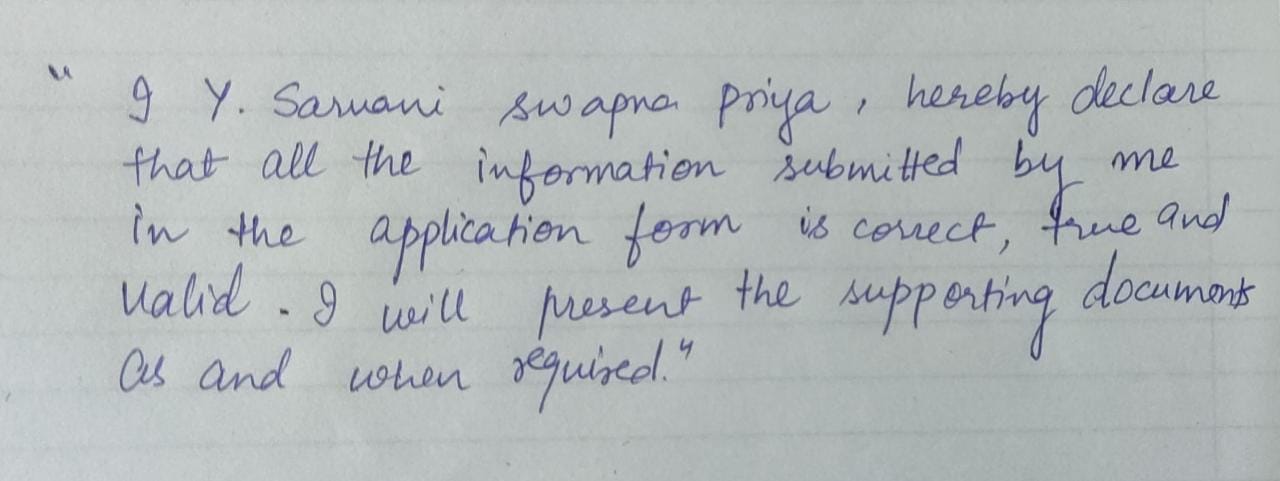 " I Y. Sarvani swapna priya, hereby declare
that all the information submitted by me
in the application form is correct, true and
valid. I will present the supporting documents
as and when required."